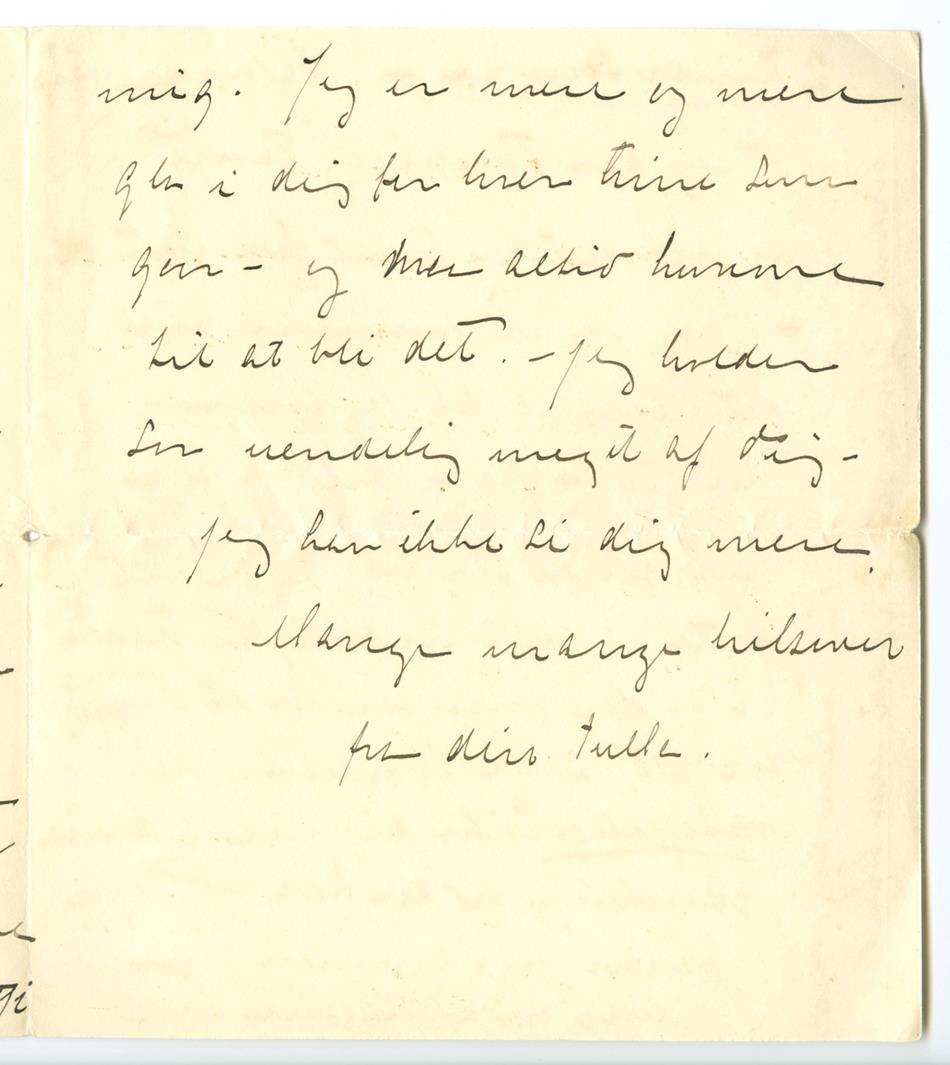 mig. Jeg er mere og mere
gla i dig for hver time som
går – og mer altid komme
til at bli det. – Jeg holder
så uendelig meget af dig –
Jeg kan ikke si dig mere.
Mange mange hilsener
fra din Tulla.